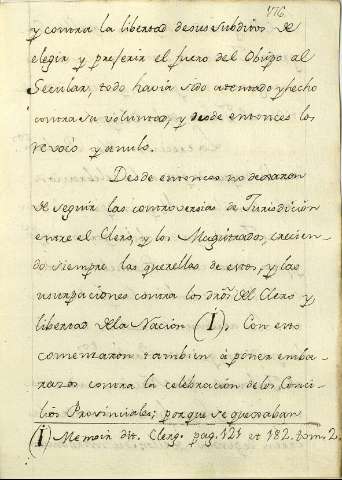 176
y contra la libertad desus subditos de
elegir y preferir el fuero del Obispo al
Secular, todo havia sido atentado y fecho
contra su voluntad, y desde entonces los
revocó y anuló.
Desde entonces no dexaron
de seguir las controversias de Jurisdicion
entre el Clero, y los Magistrados, crecien-
do siempre las querellas de estos, y las
usurpaciones contra los dros. del Clero y
libertad dela Nación (I). Con esto
comenzaron tambien à poner emba-
razos contra la celebración delos Conci-
lios Provinciales; porque se quexaban
(I) Memoir dit. Clerg. pag. 121 et 182. tom. 2.